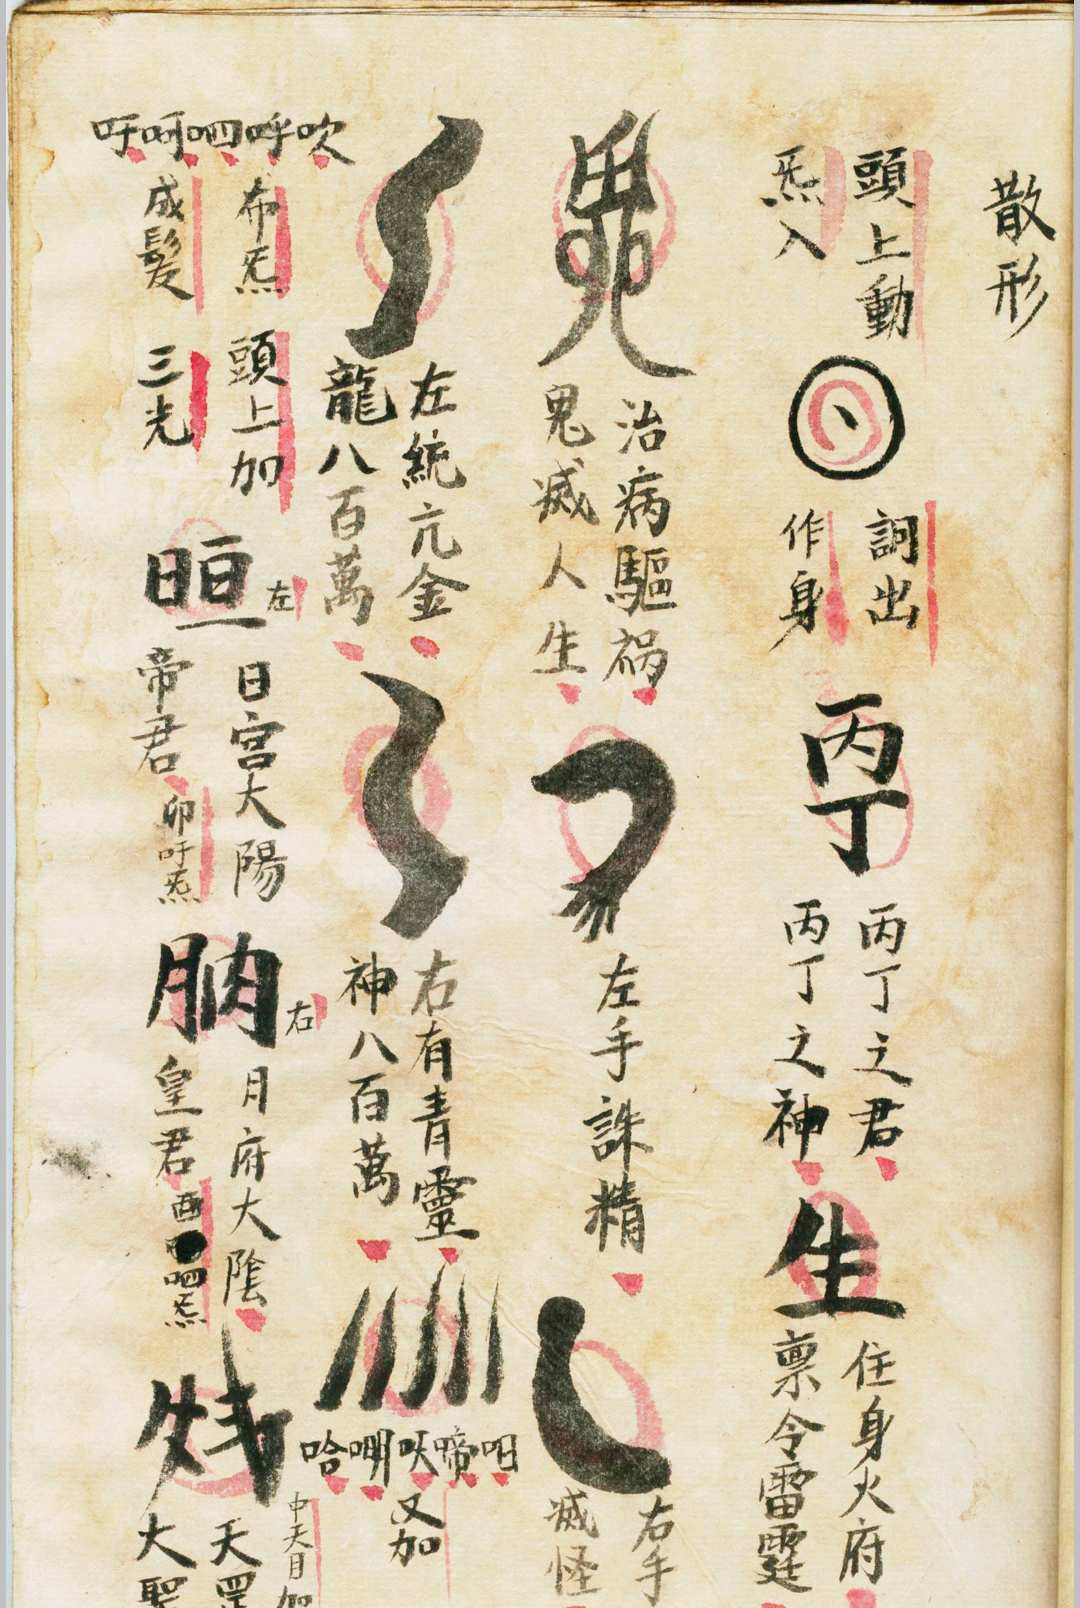 散形
頭上動
炁入
訶出
作身
丙丁
丙丁之君
丙丁之神
生
住身火府
禀令雷霆
治病驅禍
鬼滅人生
左手誅精
右手
滅怪
左統亢金
龍八百萬
右有青靈
神八百萬
呬啼吷嘂哈
又加
吹呼呬呵吁
布炁
成髮
頭上加
三光
晅
左
日宮大陽
帝君
卯吁炁
右
月府大陰
皇君
酉
呬炁
中天目
天罡
大聖